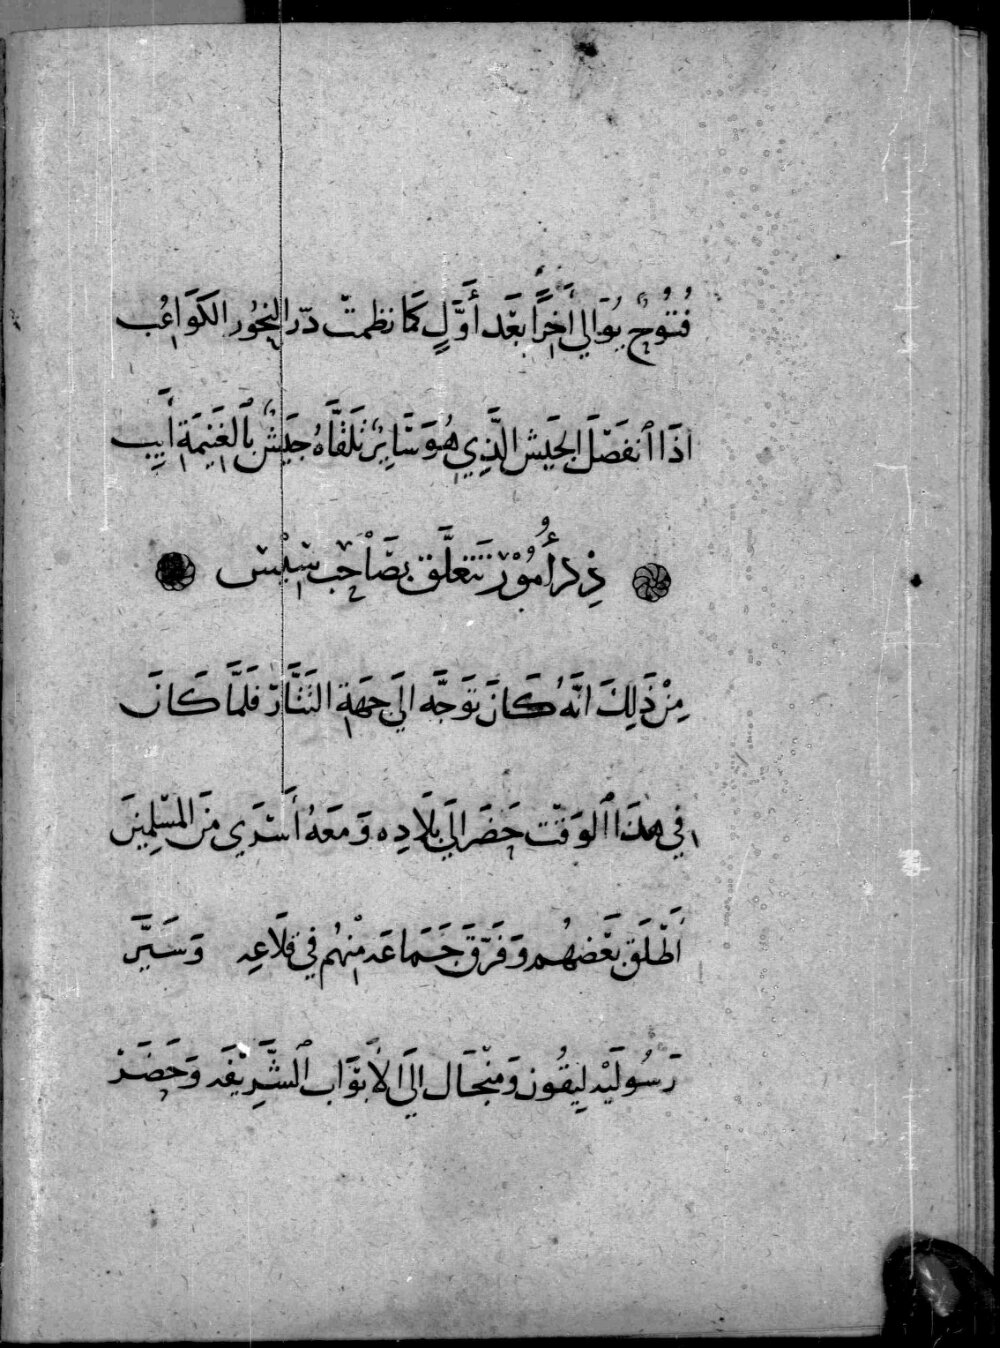 فُتُوحٌ يُوَالِي أَخِرًا بَعْدَ أَوَّلٍ كَمَا نظمتْ درّ النحُور الكَوَاعُب
اذَا ٱنفَصَلَ الجَيش الَّذِي هُوَ سَايِرٌ تَلَقَّاهُ جَيْشٌ بٱلغَنِيمَةِ أَيِب
ذِكر أُمُوْر تَتَعلَّق بصَاحِب سِيْس
مِنْ ذَلِكَ انَّهُ كَانَ تَوَجَّه الَى جِهَةِ التَتَار فَلَمَّا كَانَ
فِي هذَا ٱلوَقْت حَضَر الَى بلَادِه وَمَعَهُ أَسْرَى مِنَ المسْلِمِينَ
اَطْلَقَ بَعْضَهُم وَفَرَّقَ جَمَاعَه مِنْهُم فِي قلَاعِه وَسَيَّرَ
رَسُولَيْه لِيقُون وَمنْجَال الَى الأَبْوَاب ٱلشَّرِيفَه وَحَضَرَ